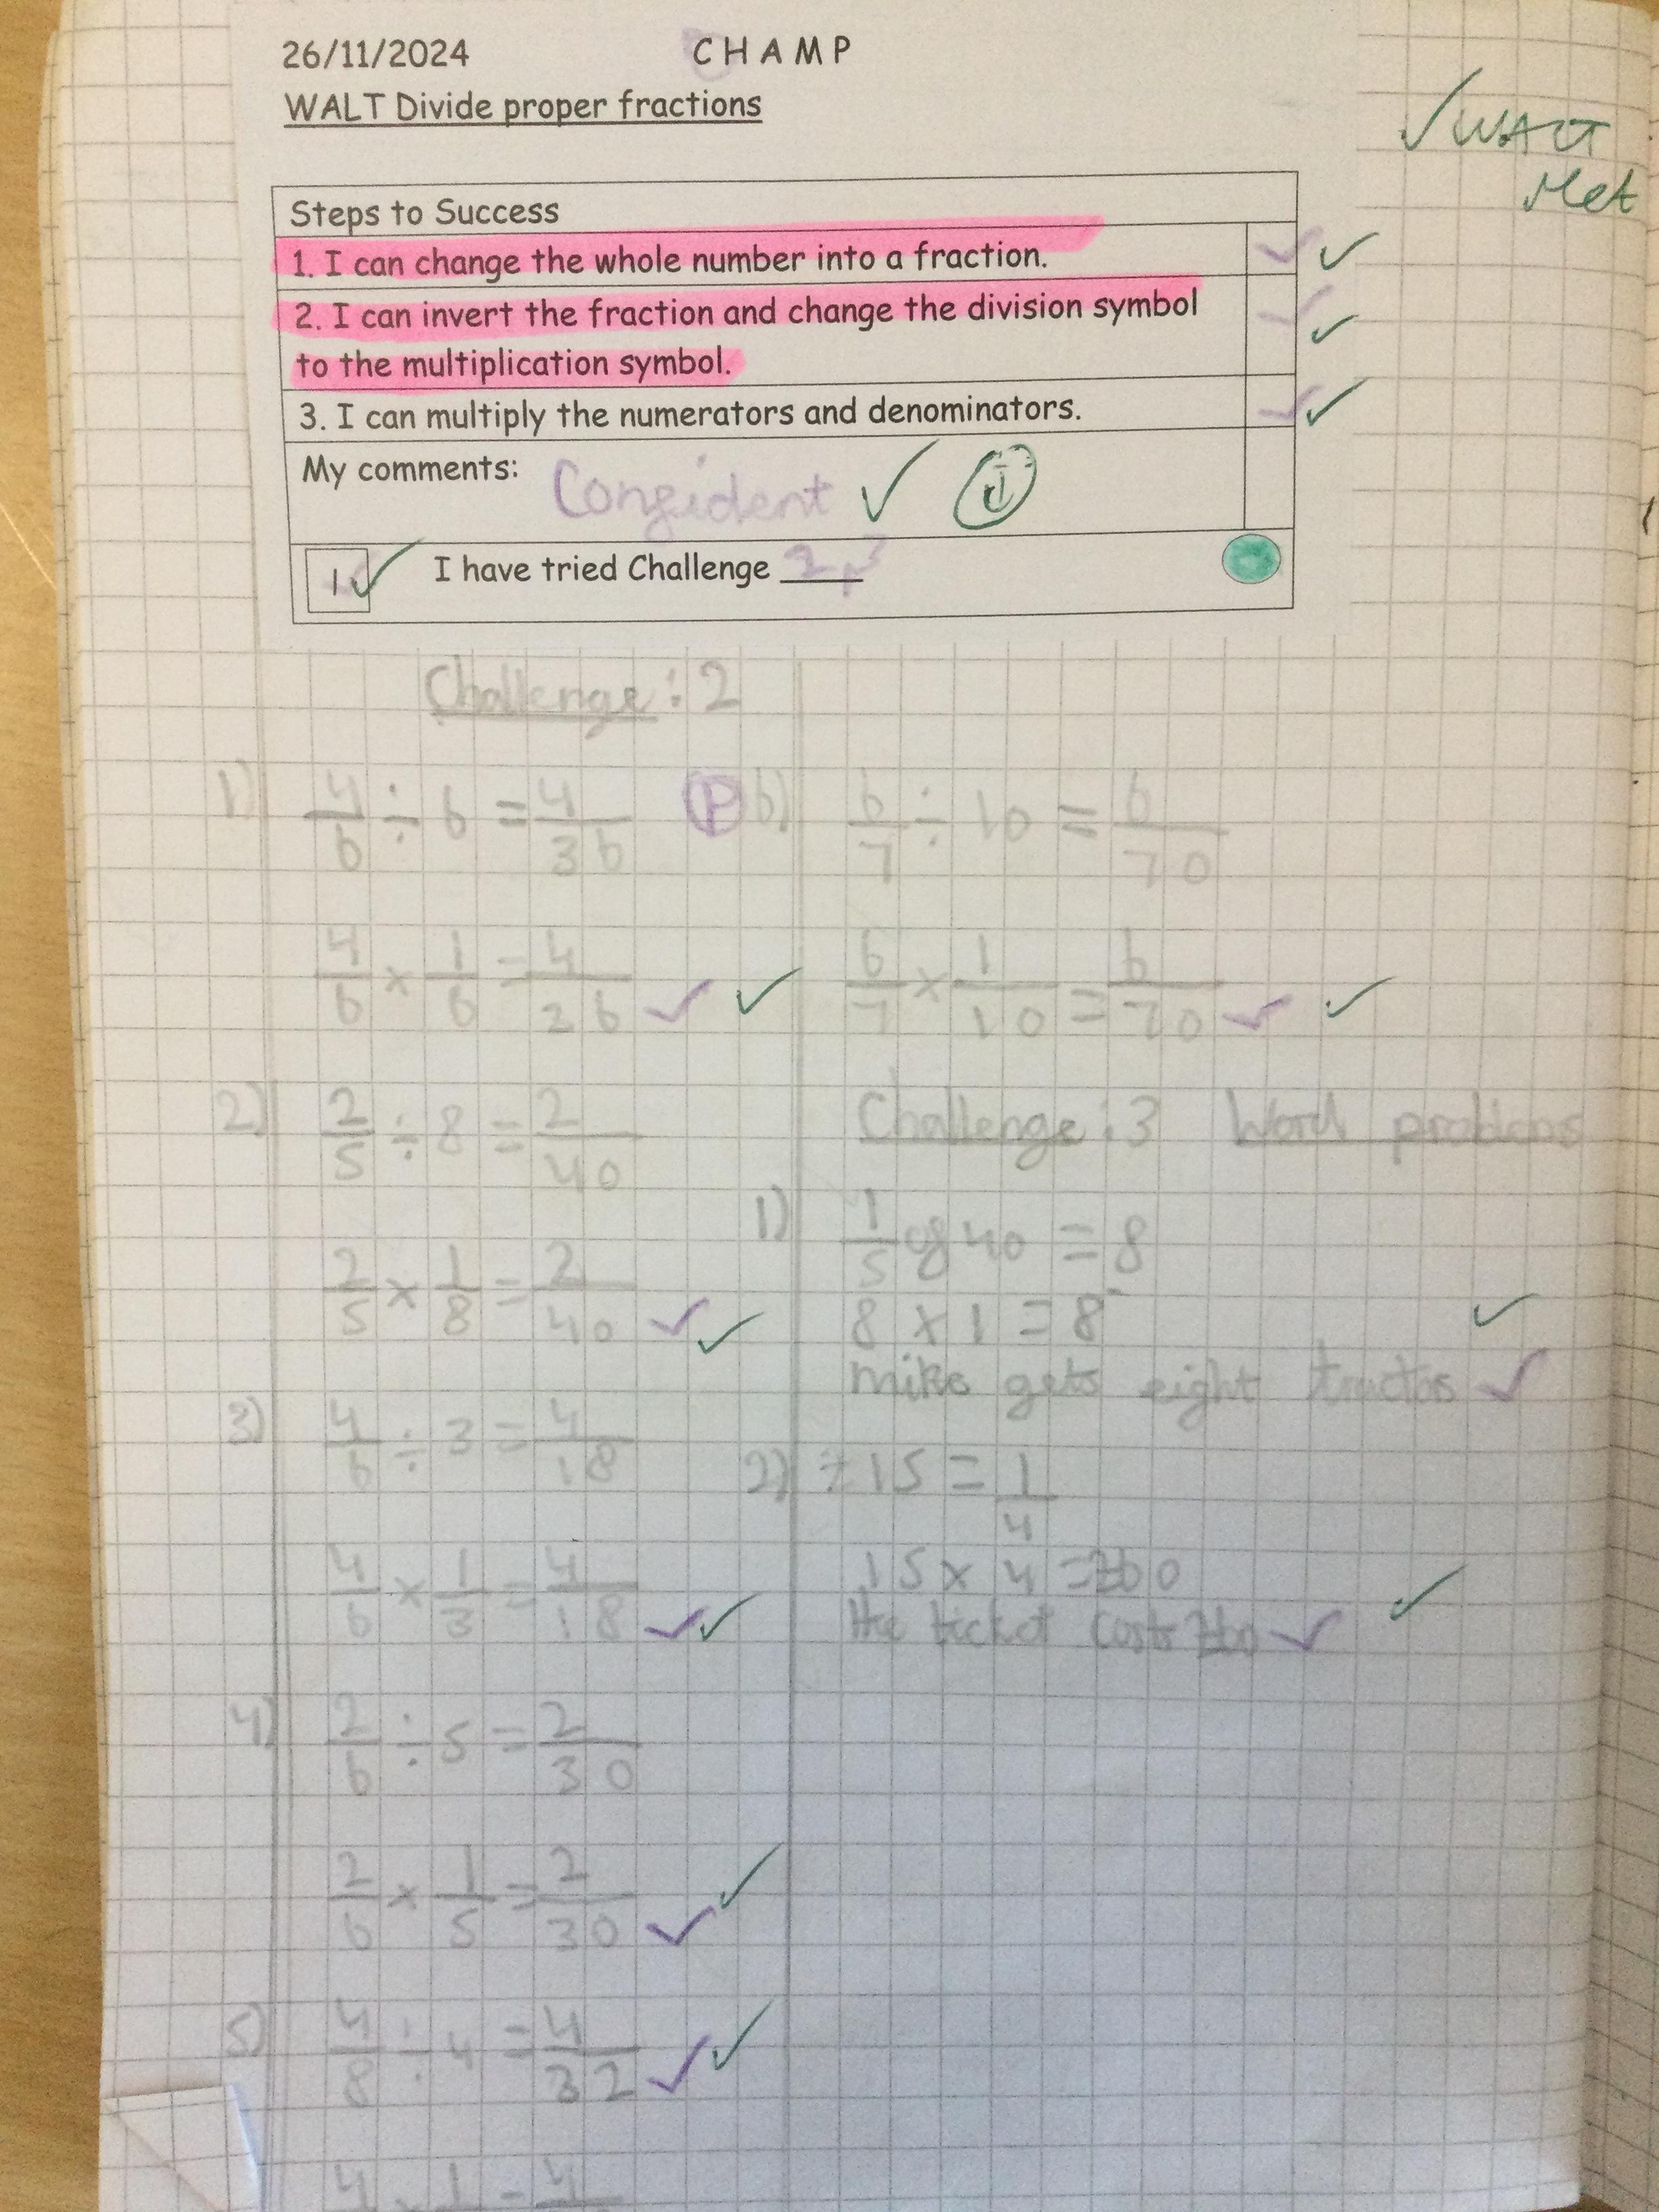 26/11/2024 C H A M P
WALT Divide proper fractions
✓ WALT
Met
Steps to Success
1. I can change the whole number into a fraction. ✓ ✓
2. I can invert the fraction and change the division symbol ✓ ✓
to the multiplication symbol.
3. I can multiply the numerators and denominators. ✓ ✓
My comments: Congident ✓
1 ✓ I have tried Challenge 2, 3
Challenge : 2
1) 4/6 ÷ 6 = 4/36
4/6 × 1/6 = 4/36 ✓ ✓
2) 2/5 ÷ 8 = 2/40
2/5 × 1/8 = 2/40 ✓ ✓
3) 4/6 ÷ 3 = 4/18
4/6 × 1/3 = 4/18 ✓ ✓
4) 2/6 ÷ 5 = 2/30
2/6 × 1/5 = 2/30 ✓ ✓
5) 4/8 ÷ 4 = 4/32 ✓ ✓
P
6) 6/7 ÷ 10 = 6/70
6/7 × 1/10 = 6/70 ✓ ✓
Challenge : 3 Word problems
1) 1/5 of 40 = 8
8 × 1 = 8 ✓
mike gets eight ✓
2) 15 = 1/4
15 × 4 = £60 ✓
the ticket costs £60 ✓